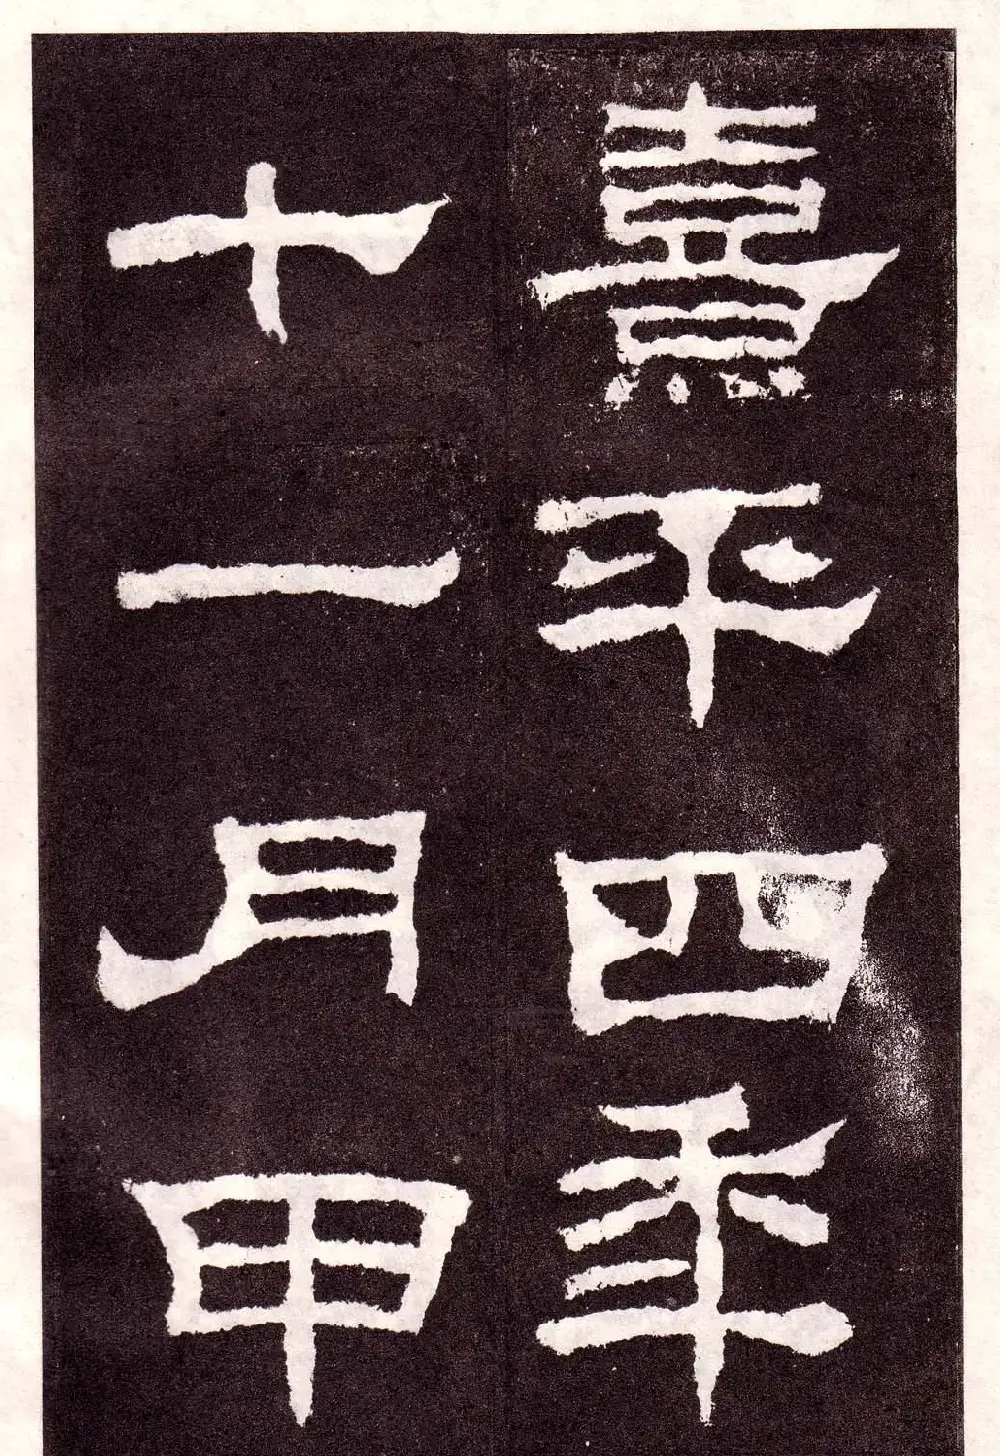 熹平四年
十一月甲